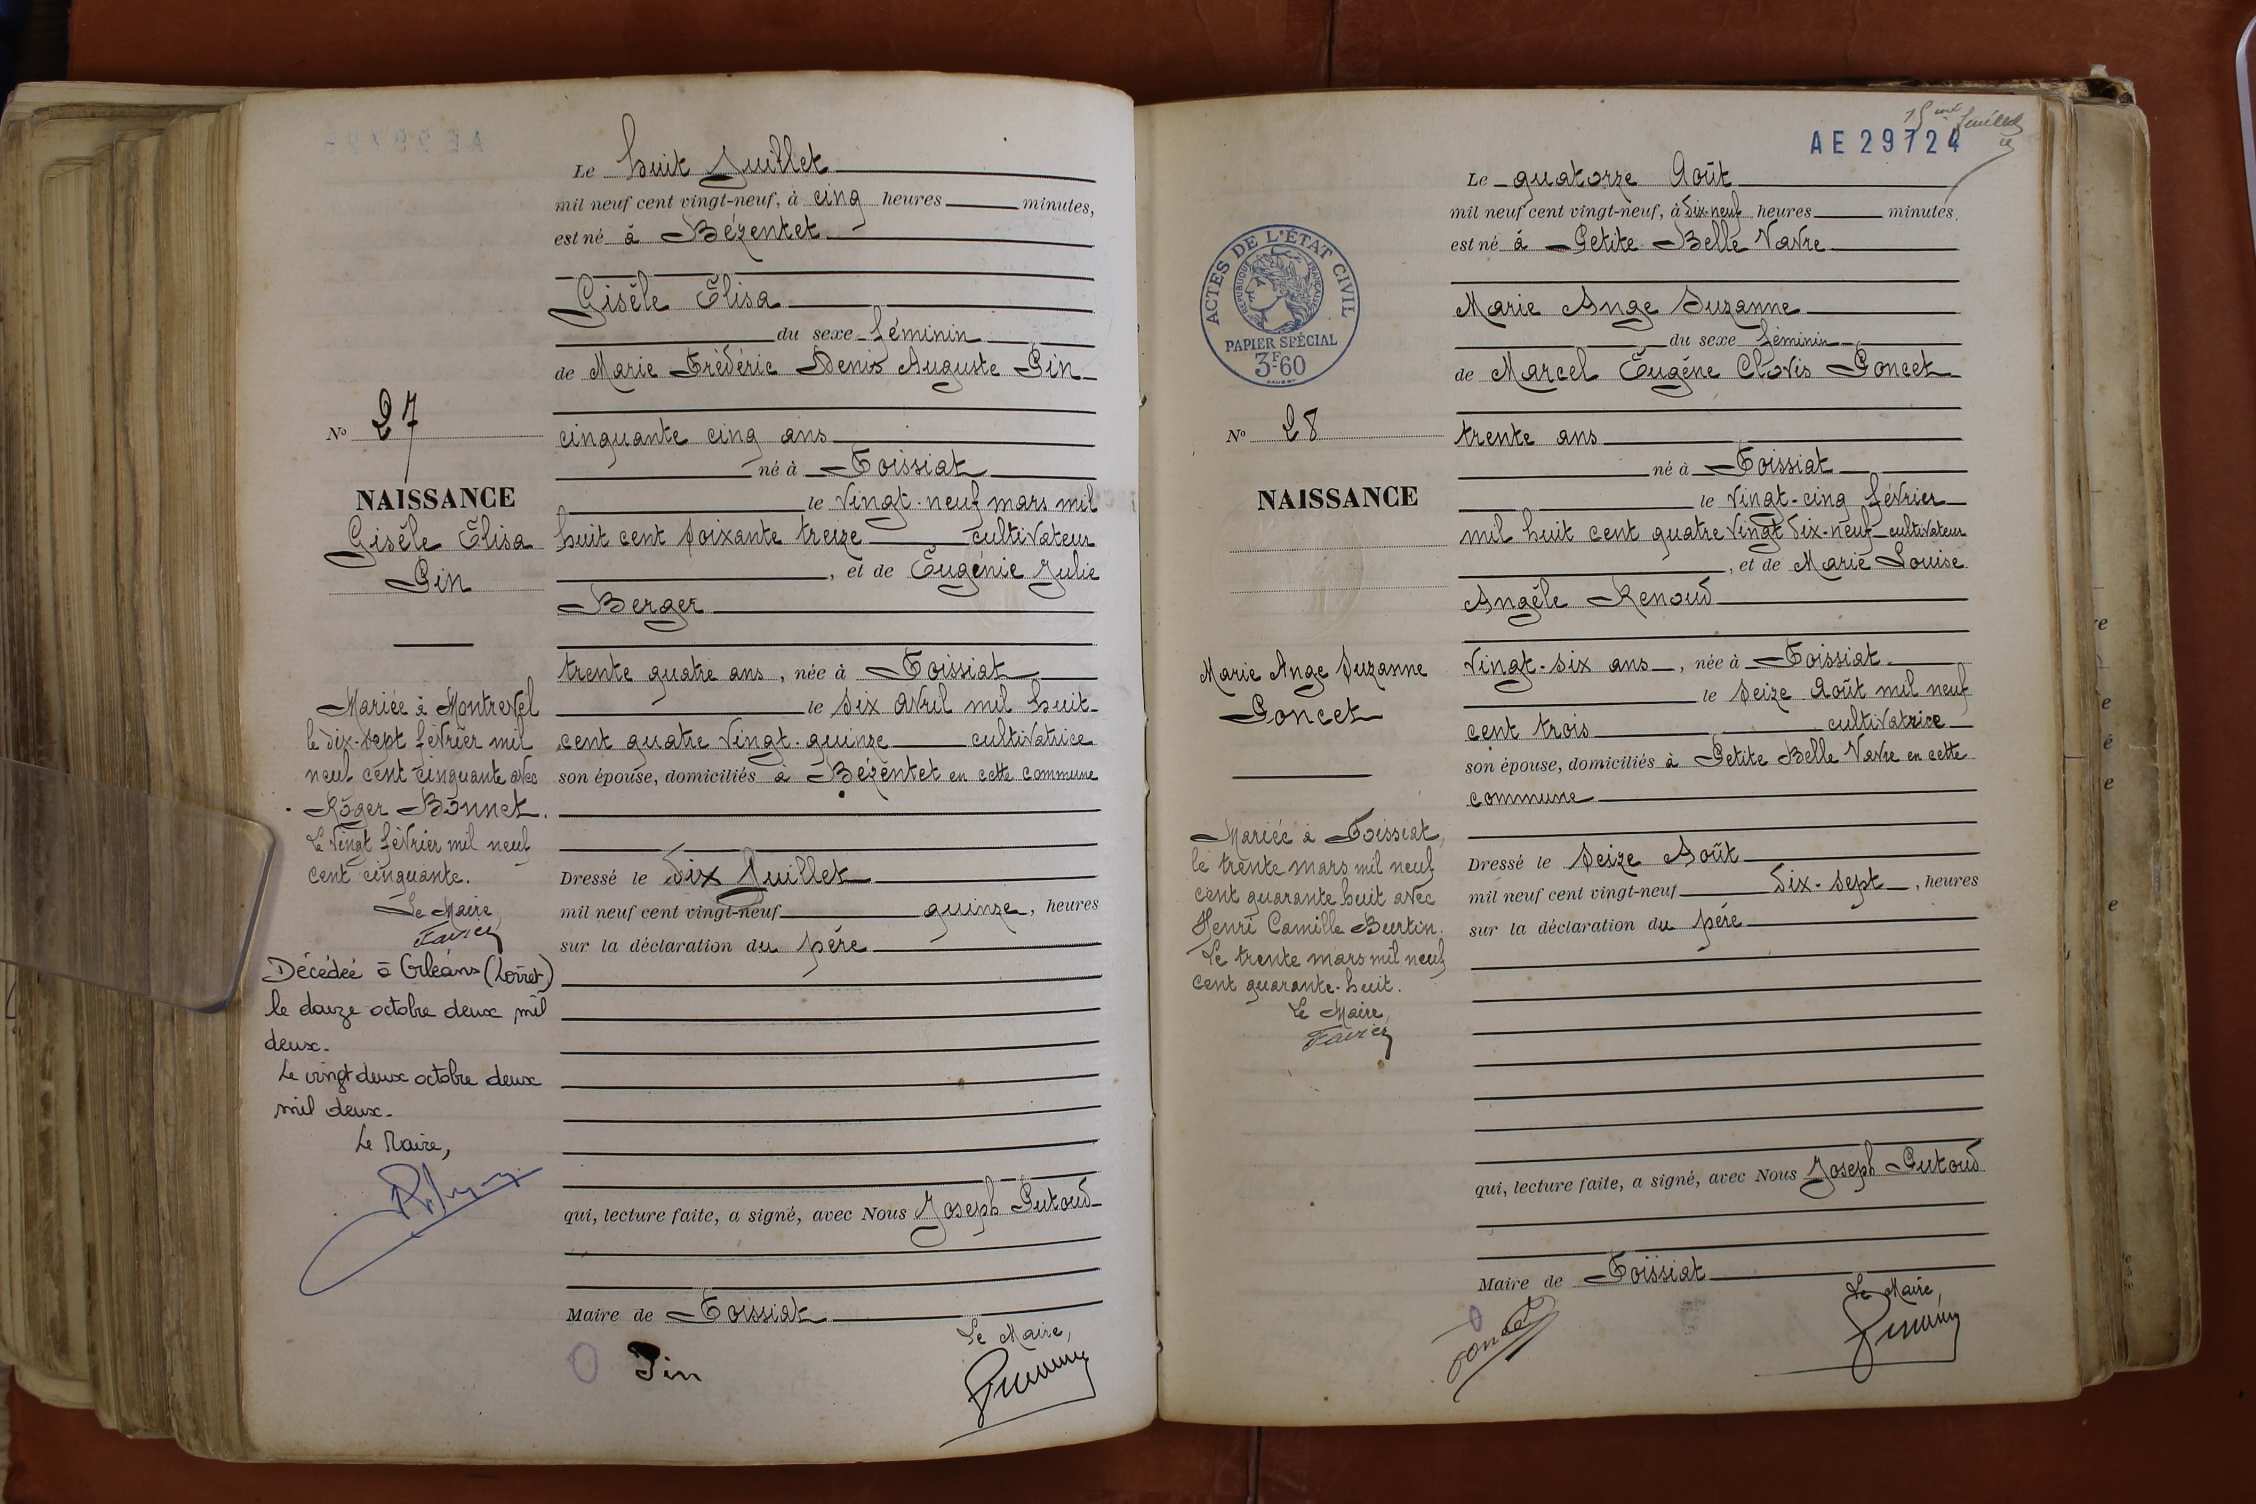 Le huit Juillet
mil neuf cent vingt-neuf, à cinq heures minutes,
est né à Bézentet
Gisèle Elisa
du sexe féminin
de Marie Frédéric Denis Auguste Pin
No 27
cinquante cinq ans
né à Foissiat
NAISSANCE
le vingt-neuf mars mil
Gisèle Elisa
huit cent soixante treize cultivateur
Pin
, et de Eugénie Julie
Berger
trente quatre ans, née à Foissiat
Mariée à Montrevel
le six avril mil huit
le dix-sept février mil
cent quatre vingt-quinze cultivatrice
neuf cent cinquante avec
son épouse, domiciliés à Bézentet en cette commune
Roger Bonnet.
Le vingt février mil neuf
cent cinquante.
Dressé le dix Juillet
Le Maire,
mil neuf cent vingt-neuf quinze, heures
Favier
sur la déclaration du père
Décédée à Orléans (Loiret)
le douze octobre deux mil
deux.
Le vingt deux octobre deux
mil deux.
Le Maire,
qui, lecture faite, a signé, avec Nous Joseph Putoud
Maire de Foissiat
Le Maire,
Pin
AE 29724
Le quatorze Août
mil neuf cent vingt-neuf, à dix-neuf heures minutes,
est né à Petite Belle Vavre
ACTES DE L'ÉTAT CIVIL
RÉPUBLIQUE FRANÇAISE
PAPIER SPÉCIAL
3F60
Marie Ange Suzanne
du sexe féminin
de Marcel Eugène Clovis Poncet
No 28
trente ans
né à Foissiat
NAISSANCE
le vingt-cinq février
mil huit cent quatre vingt dix-neuf cultivateur
, et de Marie Louise
Angèle Renoud
Marie Ange Suzanne
vingt-six ans, née à Foissiat
Poncet
le seize Août mil neuf
cent trois cultivatrice
son épouse, domiciliés à Petite Belle Vavre en cette
commune
Mariée à Foissiat,
le trente mars mil neuf
Dressé le seize Août
cent quarante huit avec
mil neuf cent vingt-neuf dix-sept, heures
Henri Camille Burtin.
sur la déclaration du père
Le trente mars mil neuf
cent quarante-huit.
Le Maire,
Favier
qui, lecture faite, a signé, avec Nous Joseph Putoud
Maire de Foissiat
Le Maire,
Poncet